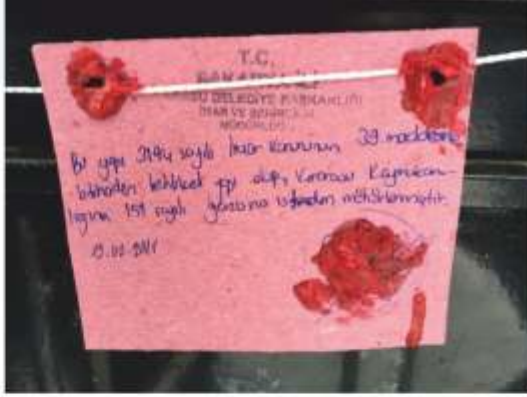 T.C.
BELEDİYE BAŞKANLIĞI
İMAR VE
MÜDÜRLÜĞÜ
Bu yapı 3194 sayılı İmar Kanununun 39. maddesine
istinaden tehlikeli yapı olup, Kaymakam-
lığına 151 sayılı yazısına istinaden mühürlenmiştir.